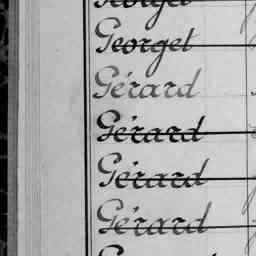 Georget
Georget
Gérard
Gérard
Gérard
Gérard